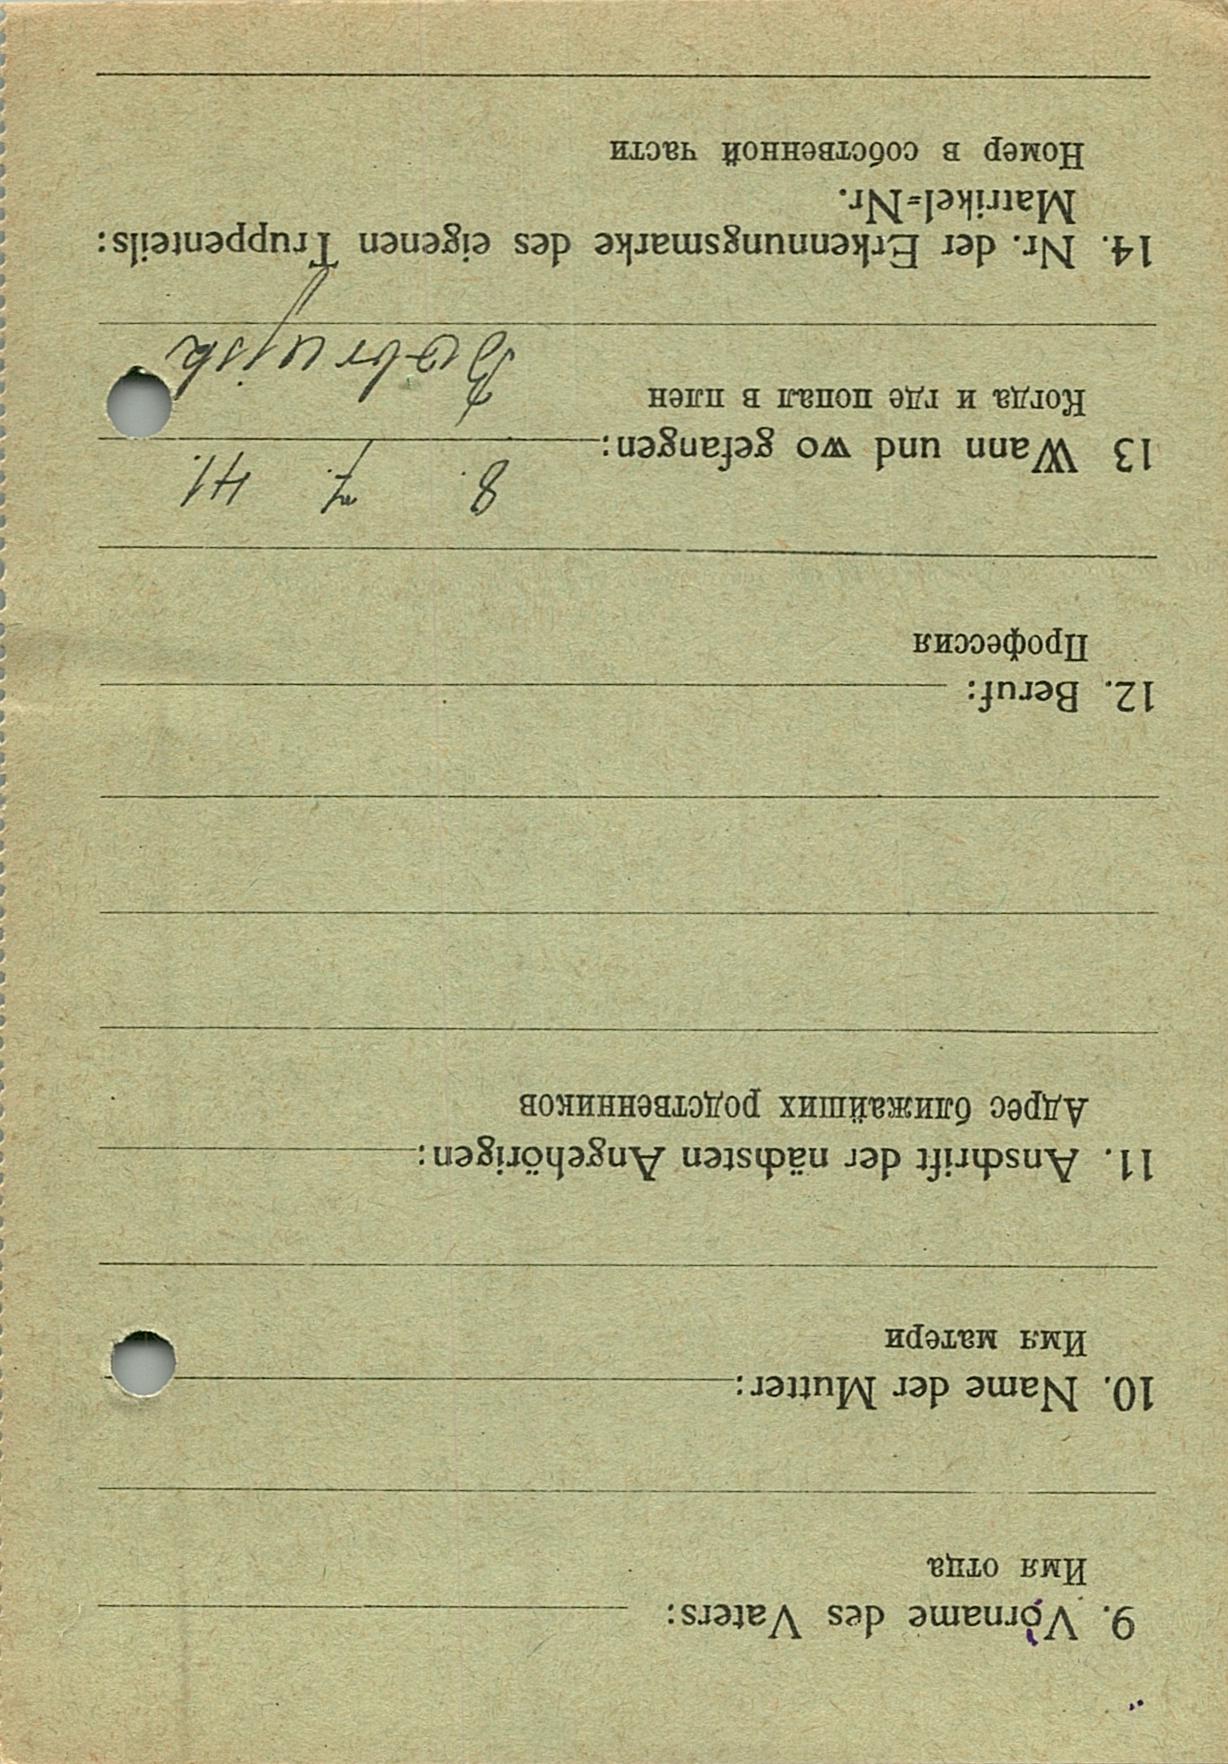 9. Vorname des Vaters:
Имя отца
10. Name der Mutter:
Имя матери
11. Anschrift der nächsten Angehörigen:
Адрес ближайших родственников
12. Beruf:
Профессия
8. 7. 41.
13 Wann und wo gefangen:
Когда и где попал в плен
Bobrujsk
14. Nr. der Erkennungsmarke des eigenen Truppenteils:
Matrikel=Nr.
Номер в собственной части